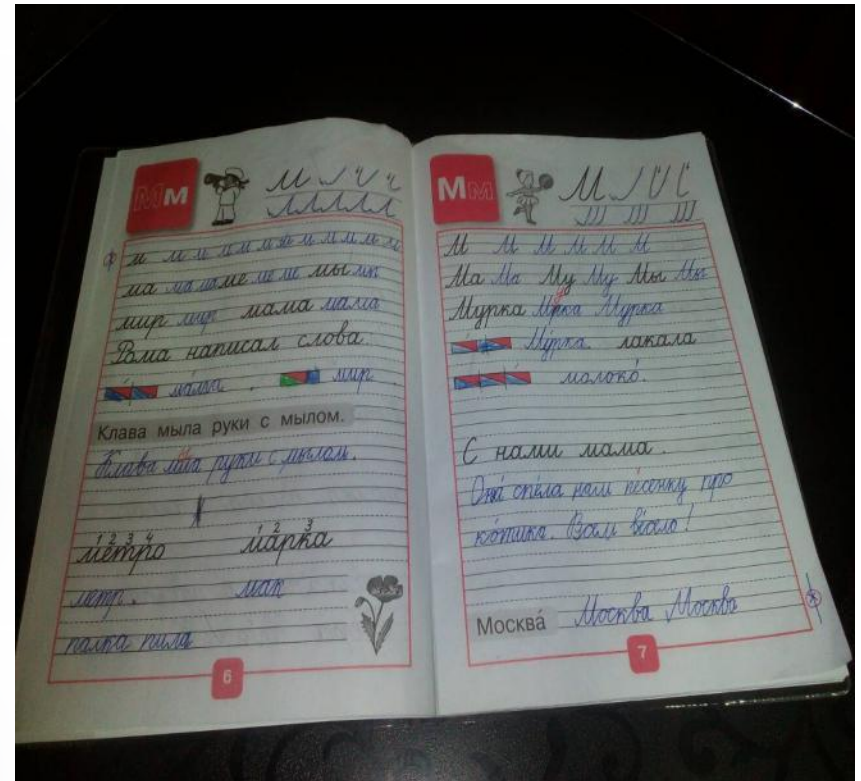 Мм
м м м м м м м м м м м
ма ма ма ме ме ме мы мы
мир мир мама мама
Рома написал слова.
мама. мир.
Клава мыла руки с мылом.
Клава мла руки с мылом.
ы
1 2 3 4 1 2 3
метро марка
метр. мак
палка пила
6
Мм
М М М М М М
Ма Ма Му Му Мы Мы
Мурка Мрка Мурка
у
Му́рка лакала
молоко́.
С нами мама.
Она́ спе́ла нам пе́сенку про
ко́тика. Вам
Москва́ Москва Москва
7